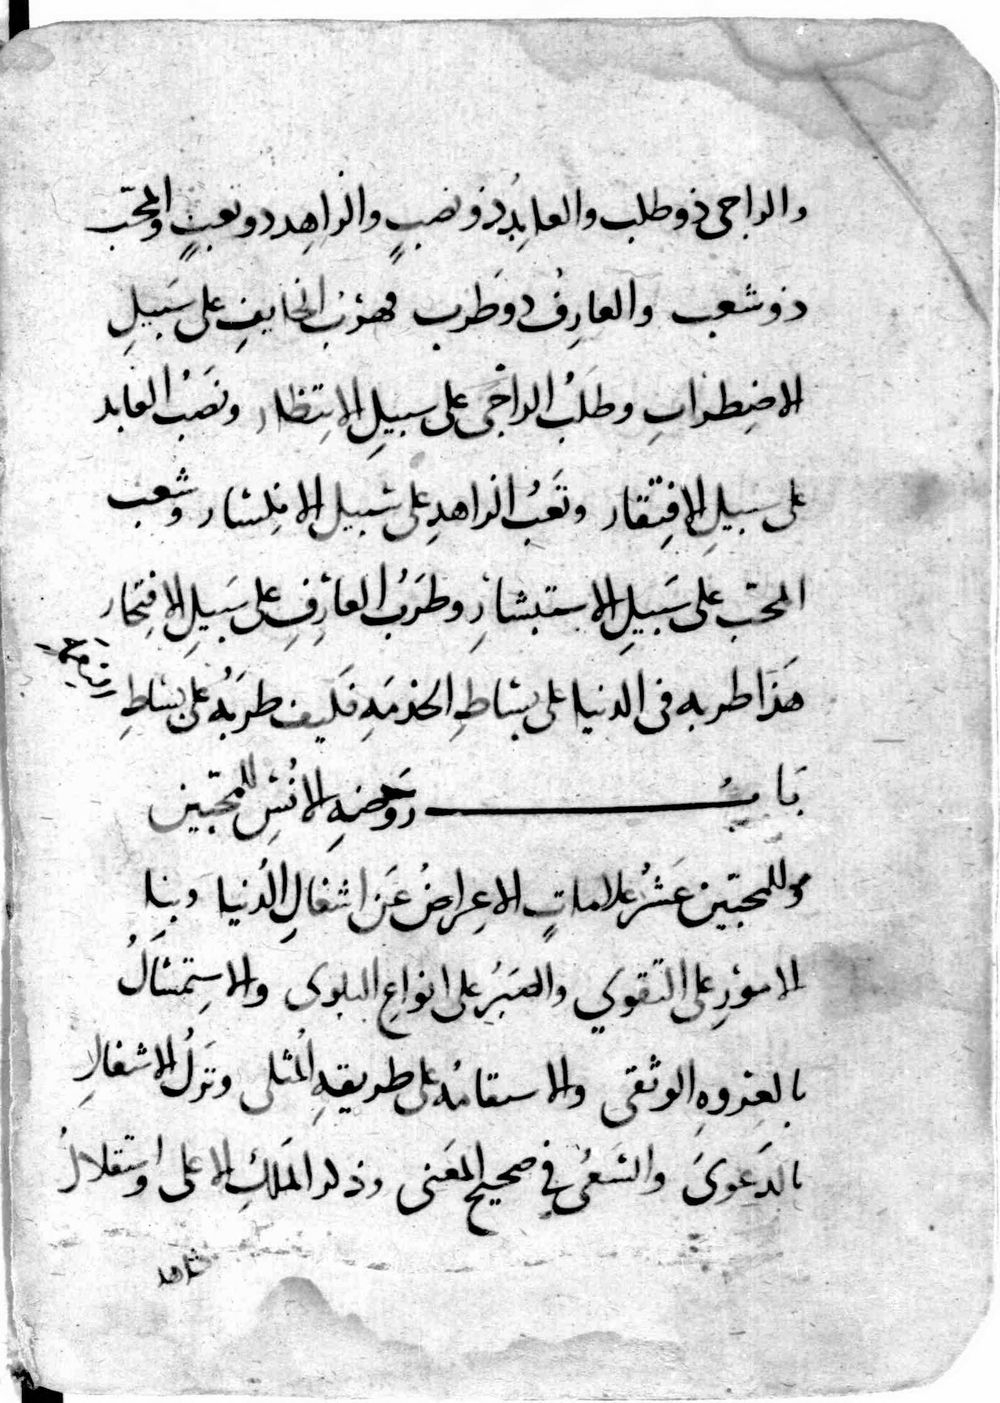 والراجى ذو طلب والعابِدُ ذو نصبٍ والزاهِد ذو تعبٍ والمحّب
ذو شعب والعارِفُ ذو طَرب فهرَبُ الخايفِ على سَبيلِ
الاضِطرابِ وطلَبُ الراجى على سبيلِ الانتِظار ونصَبُ العابد
على سبيلِ الافِتقار وتَعَبُ الزاهدِ على سبيل الانكِسار وشعب
المحّب على سَبيلِ الاستبشارِ وطرَبُ العارِفِ على سَبيلِ الافِتخار
هَذا طربه فى الدنيا على بساطِ الخدمَهِ فكَيف طربُهُ على بساطِ
بَابُ روَضهِ الانُسِ للمحّبين
وللمحبّين عَشرُ علاماتٍ الاعِراضُ عَن اشغالِ الدُنيا وبنا
الامورِ على التقوي والصَبرُ على انواعِ البلوى والاستِمسَاكُ
بالعِروهِ الوثقى والاستقامُه على طريقهِ المُثلى وترَكُ الاشغالِ
بالدَعوىَ والسَعىُ في صحيحِ المعَنى وذكر المَلكِ الاعلى واستقلالُ
شاهد